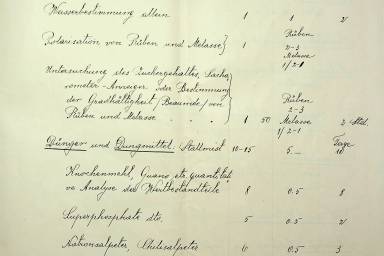 Wasserbestimmung allein 1 1 2
Rüben
Polarisation von Rüben und Melasse } 1 2-3
Melasse
1/2-1
Untersuchung des Zuckergehaltes, Sacha,
rometer-Anzeiger oder Bestimmung
der Gradhältigkeit/Beaumée/von Rüben
Rüben und Melasse . . . 2-3
1 50 Melasse 2 Std.
1/2-1
Dünger und Dungmittel: Stallmist 10-15 5.- Tage 10
Knochenmehl, Guano etc. quantitati
ve Analyse des Wertbestandteile 8 0.5 8
Superphosphate dto. 5 0.5 2
Natronsalpeter, Chilisalpeter 10 0.5 3